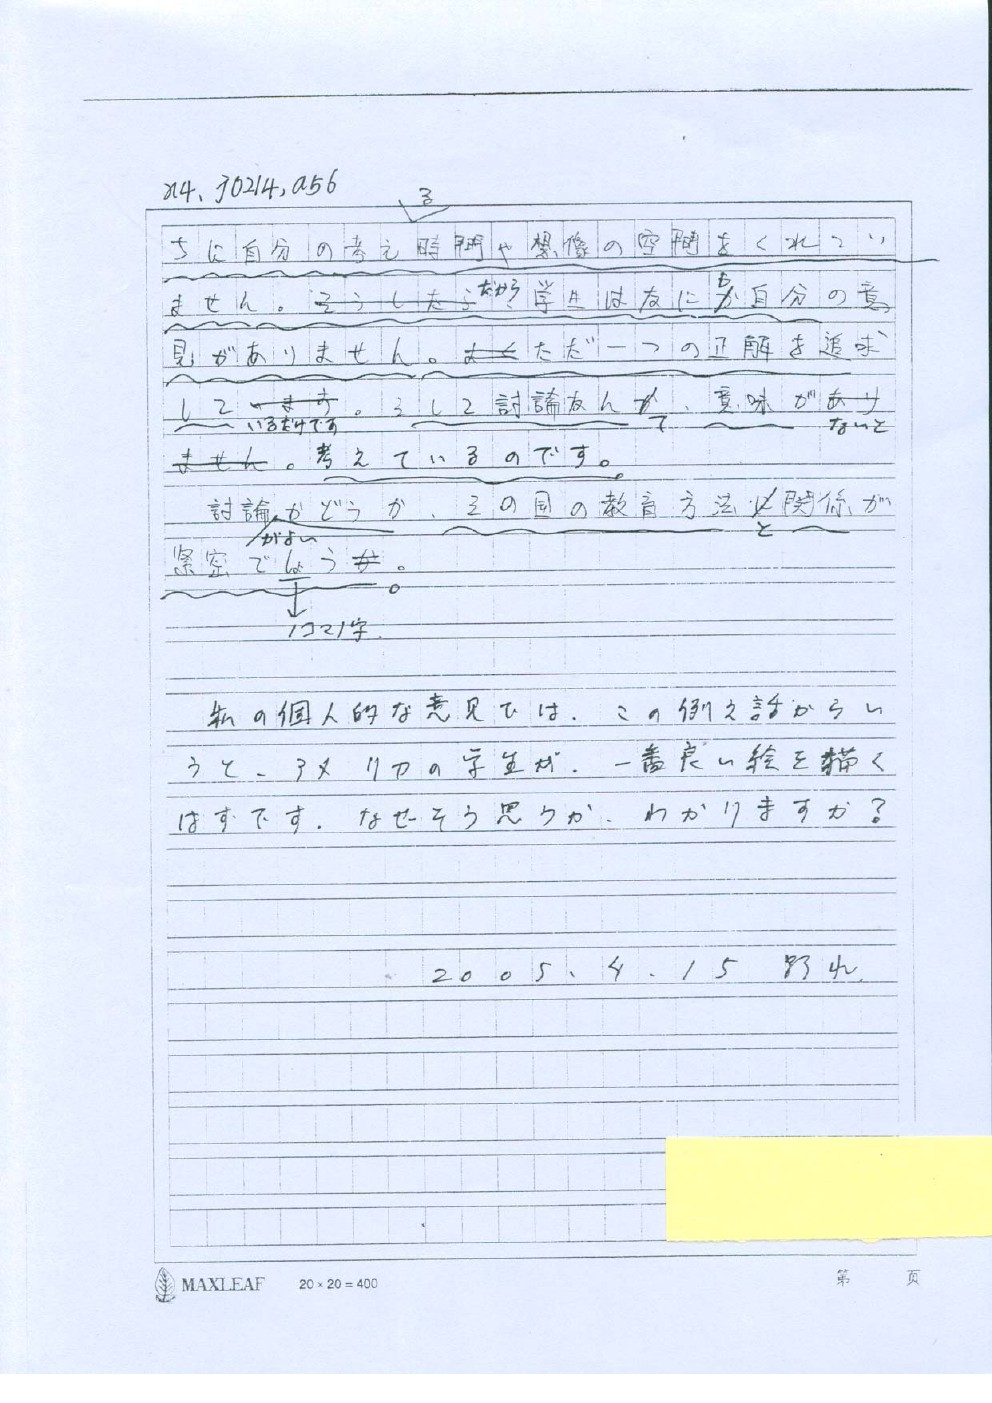 n4、J0214,a56
る
ちに自分の考え時間や想像の空間をくれてい
ません。そうしたらだから学生は友に もが自分の意
見がありません。よくただ一つの正解を追求
して います。そして討論なんか、意味があり
いるだけです て ないと
ません。考えているのです。
討論かどうか、その国の教育方法に関係が
がよい と
緊密でしょうか。
。
1コマ1字.
私の個人的な意見では、この例え話からい
うと、アメリカの学生が、一番良い絵を描く
はずです。なぜそう思うか、わかりますか?
2005.4.15
MAXLEAF 20×20=400 第 页